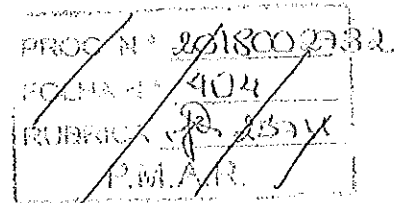 PROC N° 2018002732
FOLHA N° 404
RUBRICA
P.M.A.R.